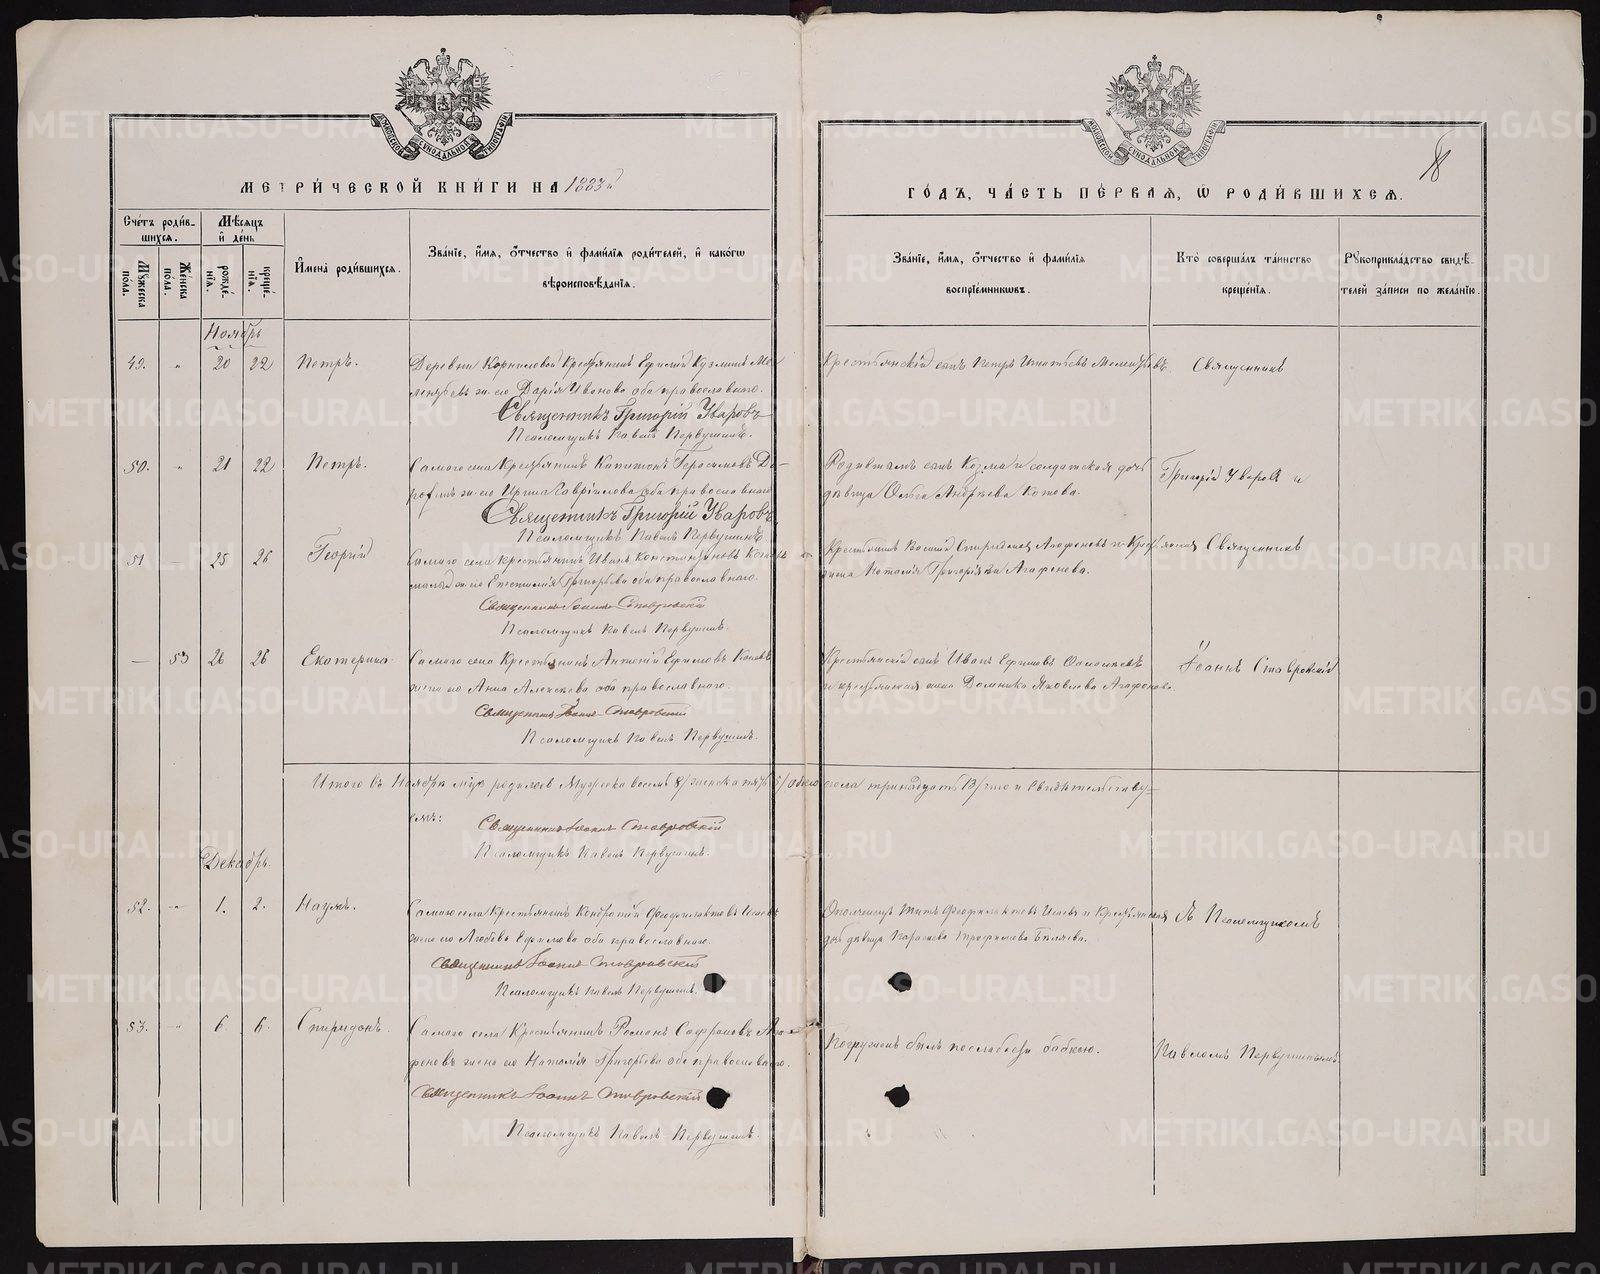 МЕТРИ́ЧЕСКОЙ КНИ́ГИ НА 1883й
ГО́ДЪ, ЧА́СТЬ ПЕ́РВАЯ, Ѡ РОДИ́ВШИХСЯ.
Сче́тъ роди́в-
шихся.
Му́жеска пола.
Же́нска по́ла.
Мѣ́сяцъ
и҆ де́нь
рожде́-
нія.
креще́-
нія.
И҆мена̀ роди́вшихся.
Зва́ніе, и҆́мя, ѻ҆́тчество и҆ фами́лія роди́телей, и҆ како́гѡ
вѣроисповѣ́данія.
Зва́ніе, и҆́мя, ѻ҆́тчество и҆ фами́лія
воспріе́мникѡвъ.
Кто̀ соверша́лъ та́инство
креще́нія.
Рꙋкоприкла́дство свидѣ́-
телей за́писи по жела́нію.
Ноябрь
49. „ 20 22 Петръ.
Деревни Корниловой Крестьянинъ Ефимій Кузминъ
жена его Дарія Иванова оба православнаго.
Священникъ Григорій Уваровъ
Псаломщикъ Павелъ Первушинъ.
Крестьянскій сынъ Петръ Игнатьевъ
Священникъ
50. „ 21 22 Петръ.
Самого села Крестьянинъ Капитонъ Герасимовъ До-
рофѣевъ жена его Ирина Гавріилова оба православнаго
Священникъ Григорій Уваровъ
Псаломщикъ Павелъ Первушинъ
сынъ Козма и солдатская дочь
дѣвица Ольга Андреева Котова.
Григорій Уваровъ и
51 — 25 26 Георгій
Самого села Крестьянинъ Иванъ Константиновъ
жена его Григорьева оба православнаго.
Священникъ Іоаннъ Ставровскій
Псаломщикъ Павелъ Первушинъ.
Крестьянинъ Спиридоновъ Агафоновъ и Крестьянская
жена Наталія Григорьева Агафонова.
Священникъ
— 53 26 26 Екатерина
Самого села Крестьянинъ Антоній Ефимовъ
жена его Анна Алексѣева оба православнаго.
Священникъ Іоаннъ Ставровскій
Псаломщикъ Павелъ Первушинъ.
Крестьянскій сынъ Иванъ Ефимовъ
и крестьянская жена Домника Яковлева Агафонова.
Іоаннъ Ставровскій
Итого въ Ноябрѣ мцѣ родилось Мужеска восемь 8/ женска пять 5/ обоего пола тринадцать 13/ что и свидѣтельству-
емъ:
Священникъ Іоаннъ Ставровскій
Псаломщикъ Павелъ Первушинъ.
Декабрь.
52. — 1. 2. Наумъ.
Самого села Крестьянинъ Кондратій Феофилактовъ
жена его Любовь Ефимова оба православнаго.
Священникъ Іоаннъ Ставровскій
Псаломщикъ Павелъ Первушинъ.
Ополченецъ Титъ Феофилактовъ и Крестьянская
дочь дѣвица Параскева Трофимова Бѣляева.
съ Псаломщикомъ
53. „ 6 6. Спиридонъ.
Самого села Крестьянинъ Романъ Софроновъ Ага-
фоновъ жена его Наталія Григорьева оба православнаго.
Священникъ Іоаннъ Ставровскій
Псаломщикъ Павелъ Первушинъ.
Погруженъ былъ по слабости бабкою.
Павломъ Первушинымъ.